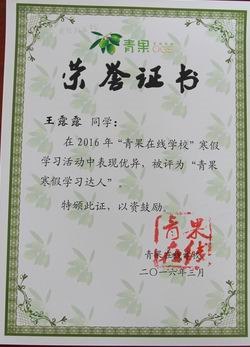 青果
荣誉证书
王露露 同学：
在2016年“青果在线学校”寒假
学习活动中表现优异，被评为“青果
寒假学习达人”。
特颁此证，以资鼓励。
青果在线学校
二〇一六年三月
青果
在线